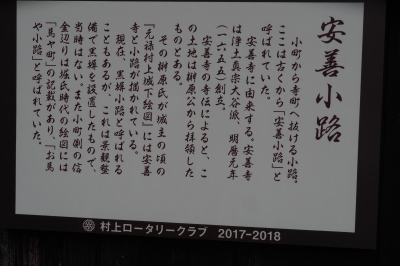 安善小路
小町から寺町へ抜ける小路。
ここは古くから「安善小路」と
呼ばれていた。
安善寺に由来する。安善寺
は浄土真宗大谷派、明暦元年
(一六五五)創立。
安善寺の寺伝によると、こ
の土地は榊原公から拝領した
ものとある。
その榊原氏が城主の頃の
『元禄村上城下絵図』には安善
寺と小路が描かれている。
現在、黒塀小路と呼ばれる
こともあるが、これは景観整
備で黒塀を設置したもので、
当時はない。また小町側の信
金辺りは堀氏時代の絵図には
「馬や町」の記載があり、「お馬
や小路」と呼ばれていた。
村上ロータリークラブ 2017-2018